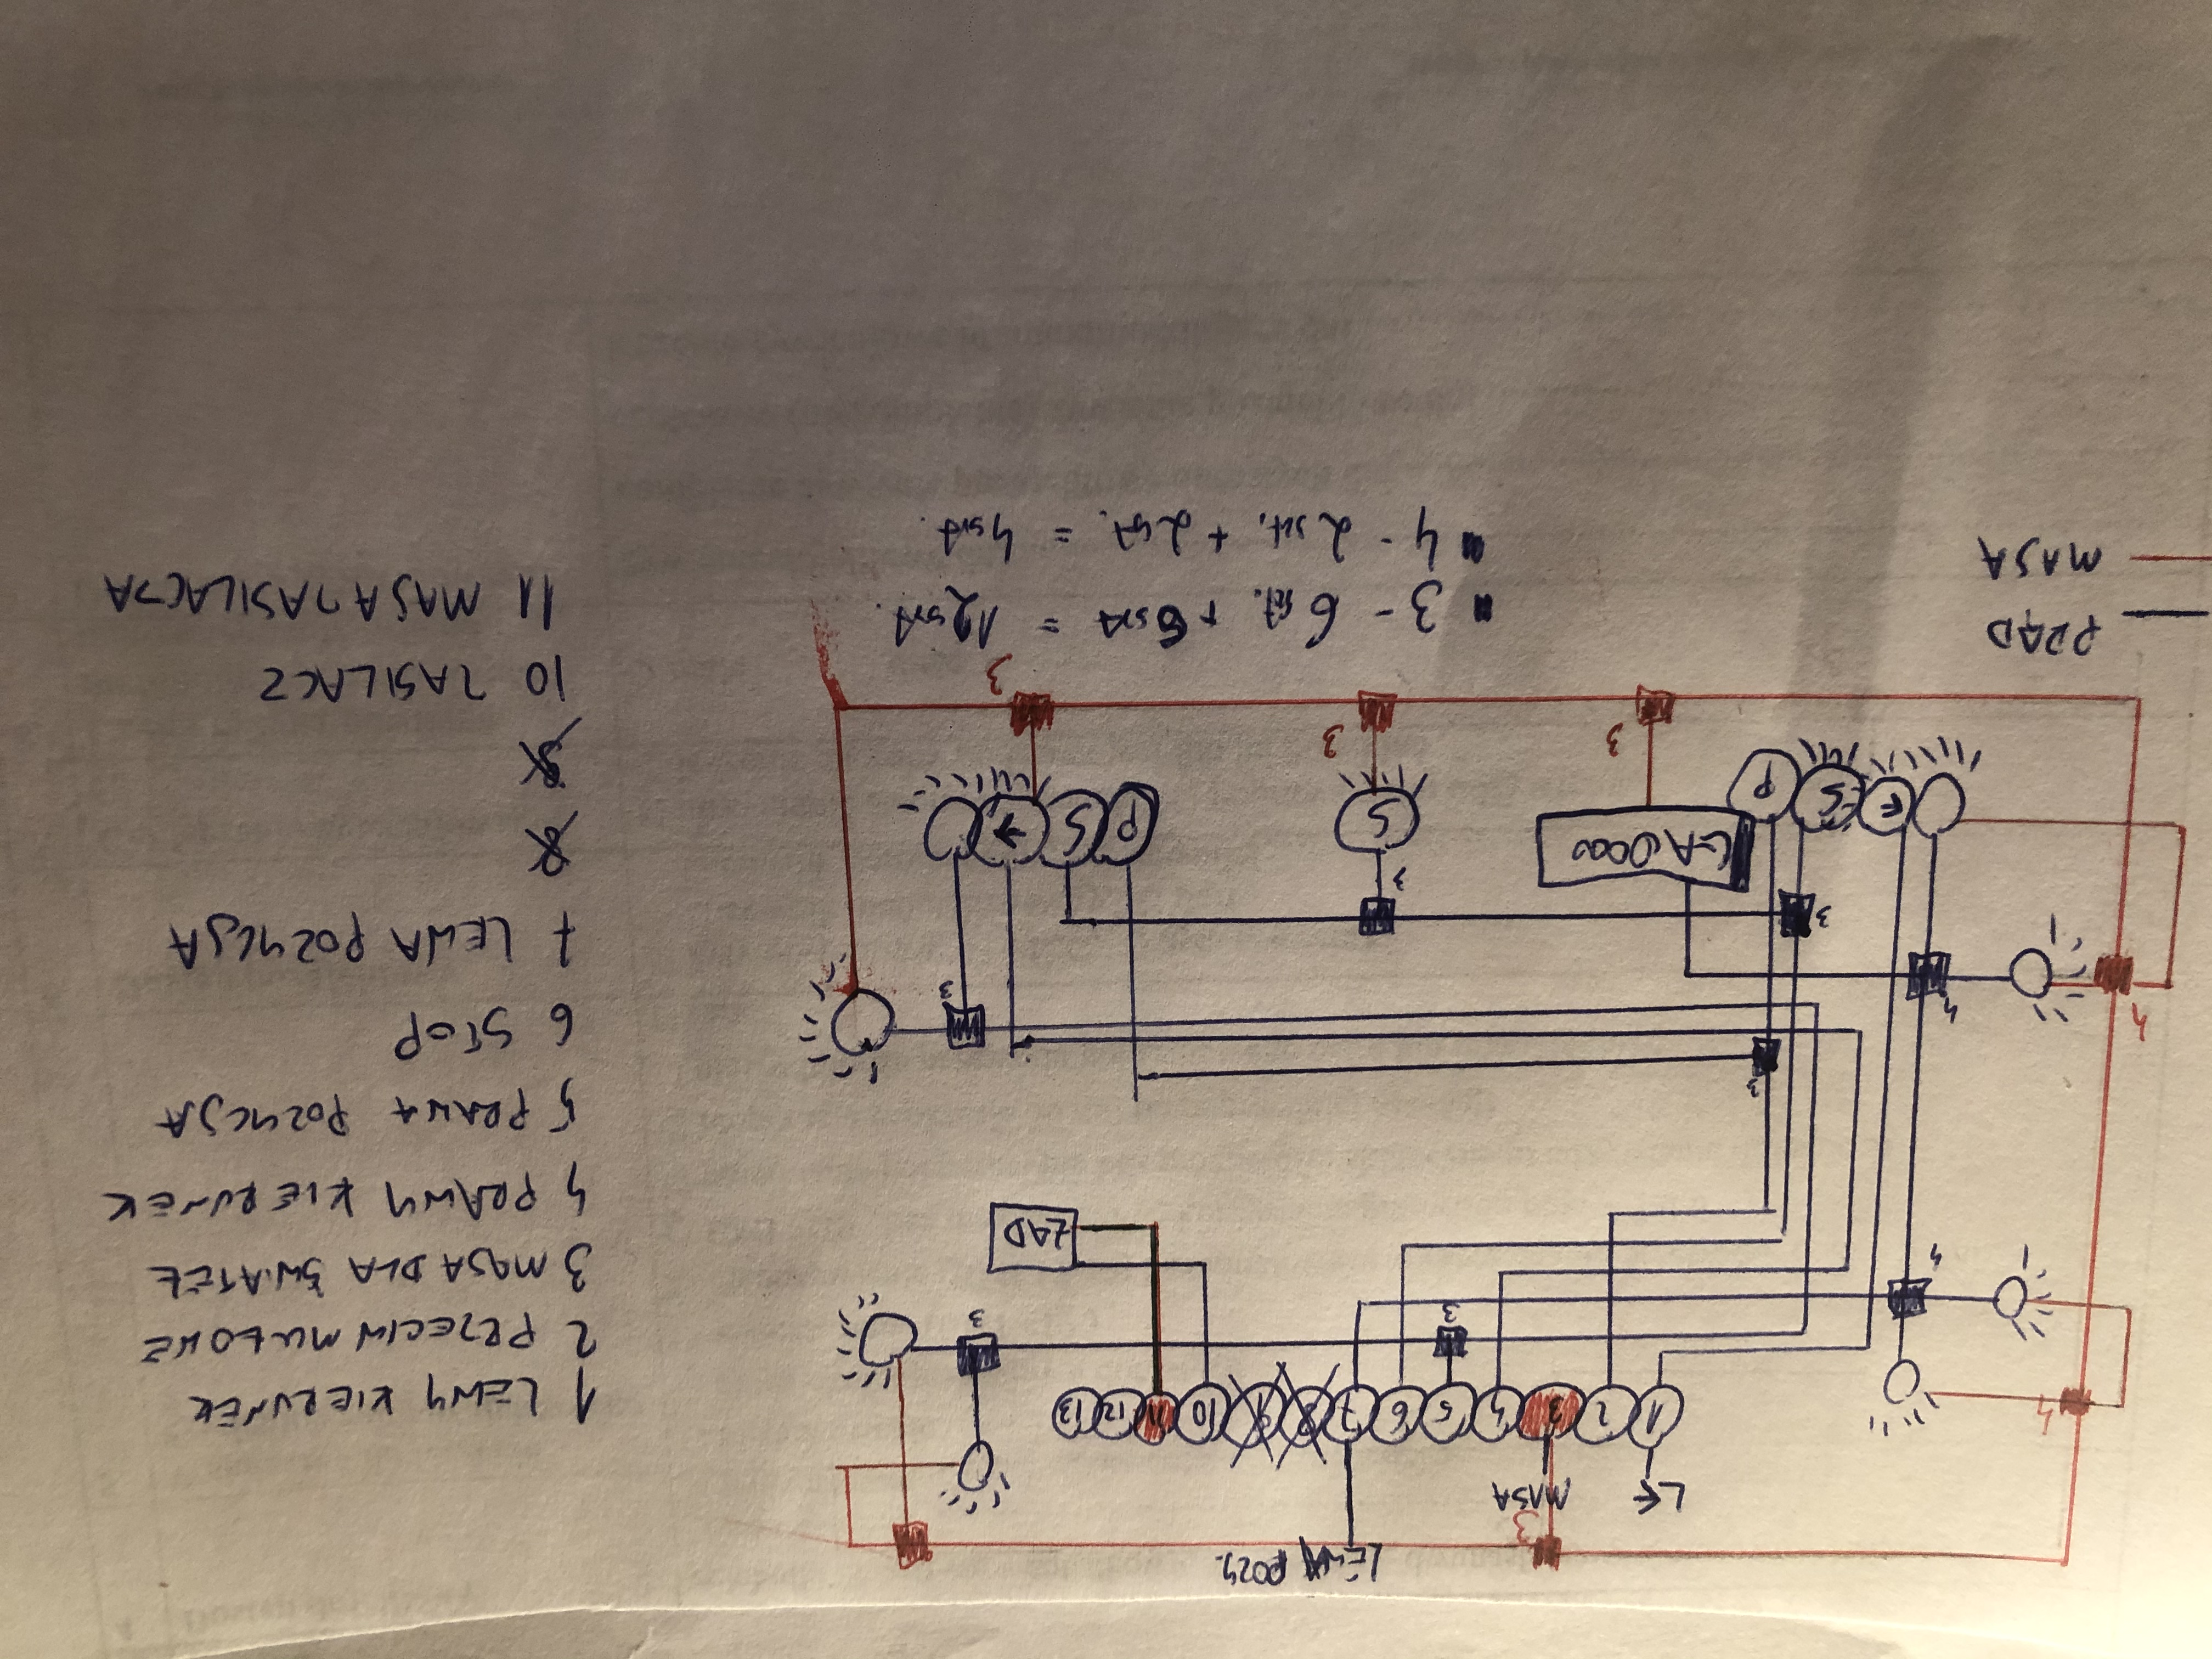 LEWA POZY.
3
L← MASA
4
1 2 3 4 5 6 7 8 9 10 11 12 13
3 3
4
ZAD
3
4 4
3
3 3
GA0000
P S ← S P S →
3 3 3
PRĄD
MASA
3 - 6 szt. + 6szt = 12szt.
4 - 2 szt. + 2szt. = 4szt.
1 LEWY KIERUNEK
2 PRZECIWMGŁOWE
3 MASA DLA ŚWIATEŁ
4 PRAWY KIERUNEK
5 PRAWA POZYCJA
6 STOP
7 LEWA POZYCJA
8
9
10 ZASILACZ
11 MASA ZASILACZA